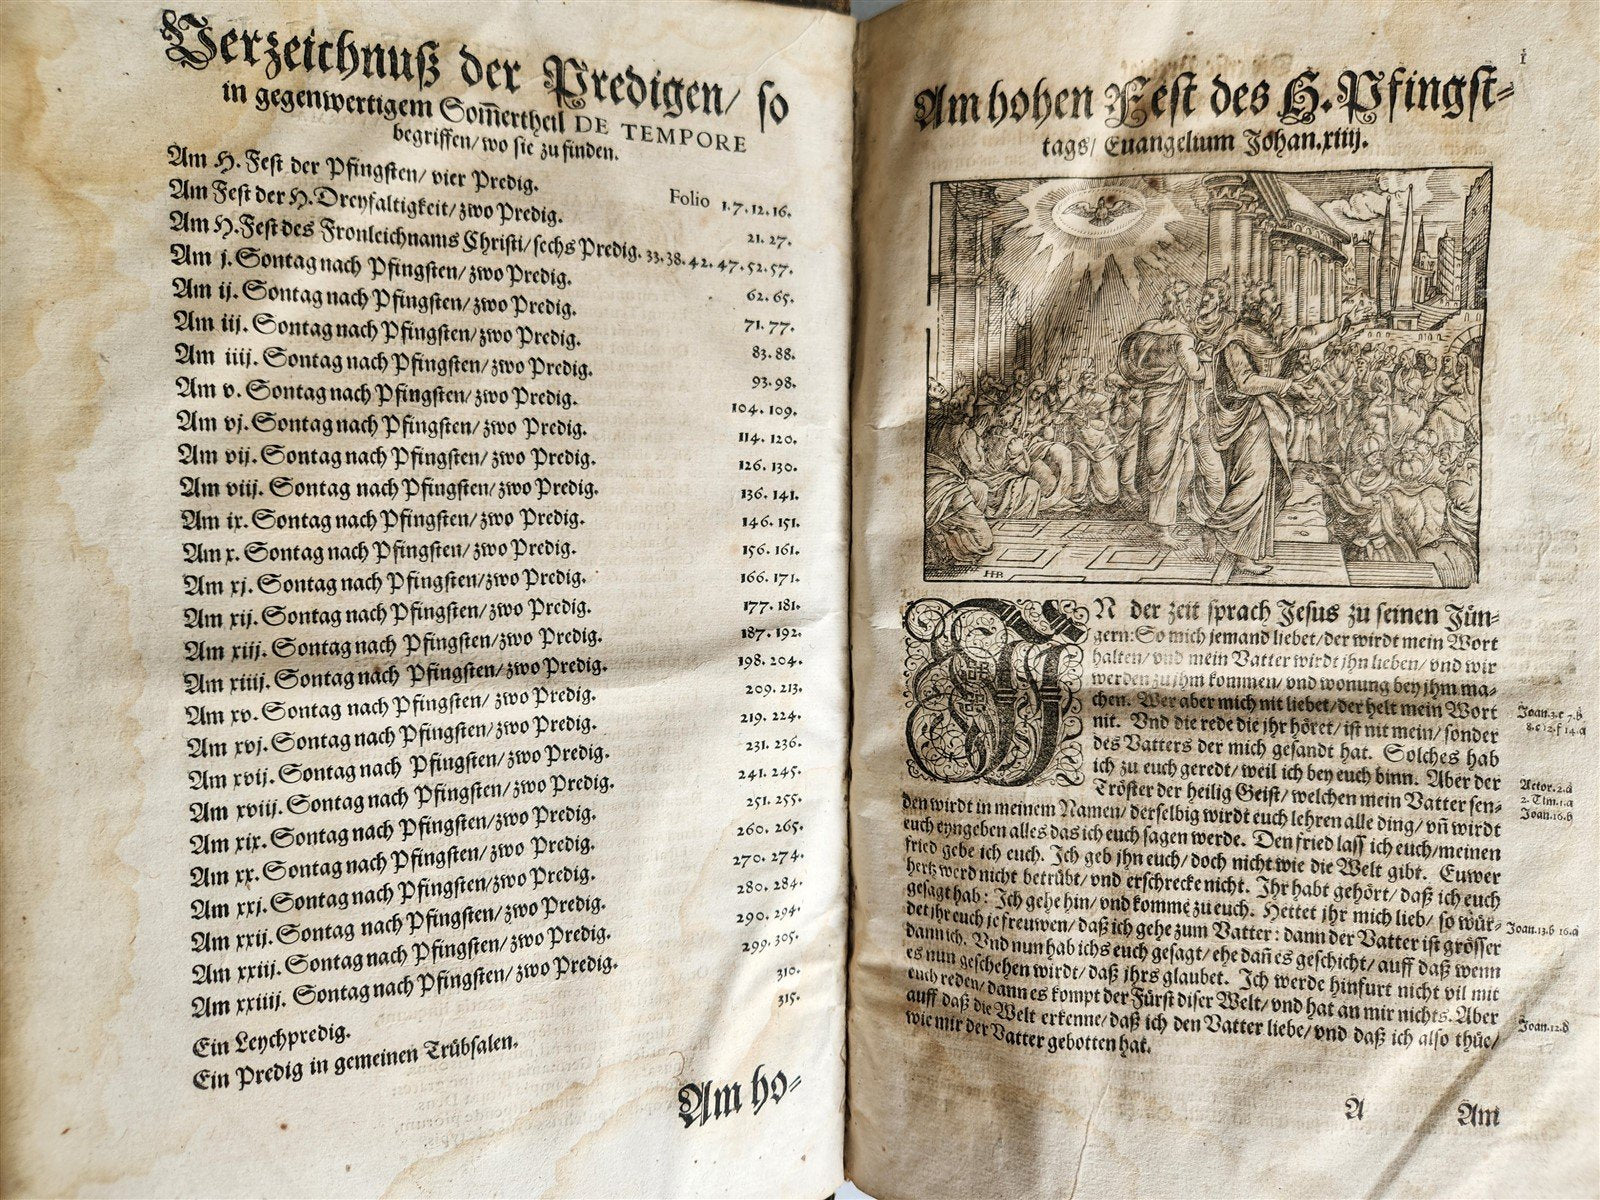 Verzeichnuß der Predigen/ so
in gegenwertigem Som̃ertheil DE TEMPORE
begriffen/ wo sie zu finden.
Am H. Fest der Pfingsten/ vier Predig. Folio 1. 7. 12. 16.
Am Fest der H. Dreyfaltigkeit/ zwo Predig. 21. 27.
Am H. Fest des Fronleichnams Christi/ sechs Predig. 33. 38. 42. 47. 52. 57.
Am j. Sontag nach Pfingsten/ zwo Predig. 62. 65.
Am ij. Sontag nach Pfingsten/ zwo Predig. 71. 77.
Am iij. Sontag nach Pfingsten/ zwo Predig. 83. 88.
Am iiij. Sontag nach Pfingsten/ zwo Predig. 93. 98.
Am v. Sontag nach Pfingsten/ zwo Predig. 104. 109.
Am vj. Sontag nach Pfingsten/ zwo Predig. 114. 120.
Am vij. Sontag nach Pfingsten/ zwo Predig. 126. 130.
Am viij. Sontag nach Pfingsten/ zwo Predig. 136. 141.
Am ix. Sontag nach Pfingsten/ zwo Predig. 146. 151.
Am x. Sontag nach Pfingsten/ zwo Predig. 156. 161.
Am xj. Sontag nach Pfingsten/ zwo Predig. 166. 171.
Am xij. Sontag nach Pfingsten/ zwo Predig. 177. 181.
Am xiij. Sontag nach Pfingsten/ zwo Predig. 187. 192.
Am xiiij. Sontag nach Pfingsten/ zwo Predig. 198. 204.
Am xv. Sontag nach Pfingsten/ zwo Predig. 209. 213.
Am xvj. Sontag nach Pfingsten/ zwo Predig. 219. 224.
Am xvij. Sontag nach Pfingsten/ zwo Predig. 231. 236.
Am xviij. Sontag nach Pfingsten/ zwo Predig. 241. 245.
Am xix. Sontag nach Pfingsten/ zwo Predig. 251. 255.
Am xx. Sontag nach Pfingsten/ zwo Predig. 260. 265.
Am xxj. Sontag nach Pfingsten/ zwo Predig. 270. 274.
Am xxij. Sontag nach Pfingsten/ zwo Predig. 280. 284.
Am xxiij. Sontag nach Pfingsten/ zwo Predig. 290. 294.
Am xxiiij. Sontag nach Pfingsten/ zwo Predig. 299. 305.
Ein Leychpredig. 310.
Ein Predig in gemeinen Trübsalen. 315.
Am ho-
1
Am hohen Fest des H. Pfingst-
tags/ Euangelium Johan. xiiij.
HB
IN der zeit sprach Jesus zu seinen Jün-
gern: So mich jemand liebet/ der wirdt mein Wort
halten/ vnd mein Vatter wirdt jhn lieben/ vnd wir
werden zu jhm kommen/ vnd wonung bey jhm ma-
chen. Wer aber mich nit liebet/ der helt mein Wort
nit. Vnd die rede die jhr höret/ ist nit mein/ sonder
des Vatters der mich gesandt hat. Solches hab
ich zu euch geredt/ weil ich bey euch binn. Aber der
Tröster der heilig Geist/ welchen mein Vatter sen-
den wirdt in meinem Namen/ derselbig wirdt euch lehren alle ding/ vñ wirdt
euch eyngeben alles das ich euch sagen werde. Den fried lass ich euch/ meinen
fried gebe ich euch. Ich geb jhn euch/ doch nicht wie die Welt gibt. Euwer
hertz werd nicht betrübt/ vnd erschrecke nicht. Ihr habt gehört/ daß ich euch
gesagt hab: Ich gehe hin/ vnd komme zu euch. Hettet jhr mich lieb/ so wür-
det jhr euch je freuwen/ daß ich gehe zum Vatter: dann der Vatter ist grösser
dann ich. Vnd nun hab ichs euch gesagt/ ehe dañ es geschicht/ auff daß wenn
es nun geschehen wirdt/ daß jhrs glaubet. Ich werde hinfurt nicht vil mit
euch reden/ dann es kompt der Fürst diser Welt/ vnd hat an mir nichts. Aber
auff daß die Welt erkenne/ daß ich den Vatter liebe/ vnd daß ich also thüe/
wie mir der Vatter gebotten hat.
Joan. 3. c 7. b
8. c 12. f 14. a
Actor. 2. a
2. Tim. 1. a
Joan. 16. b
Joan. 13. b 16. a
Joan. 12. d
17
A Am